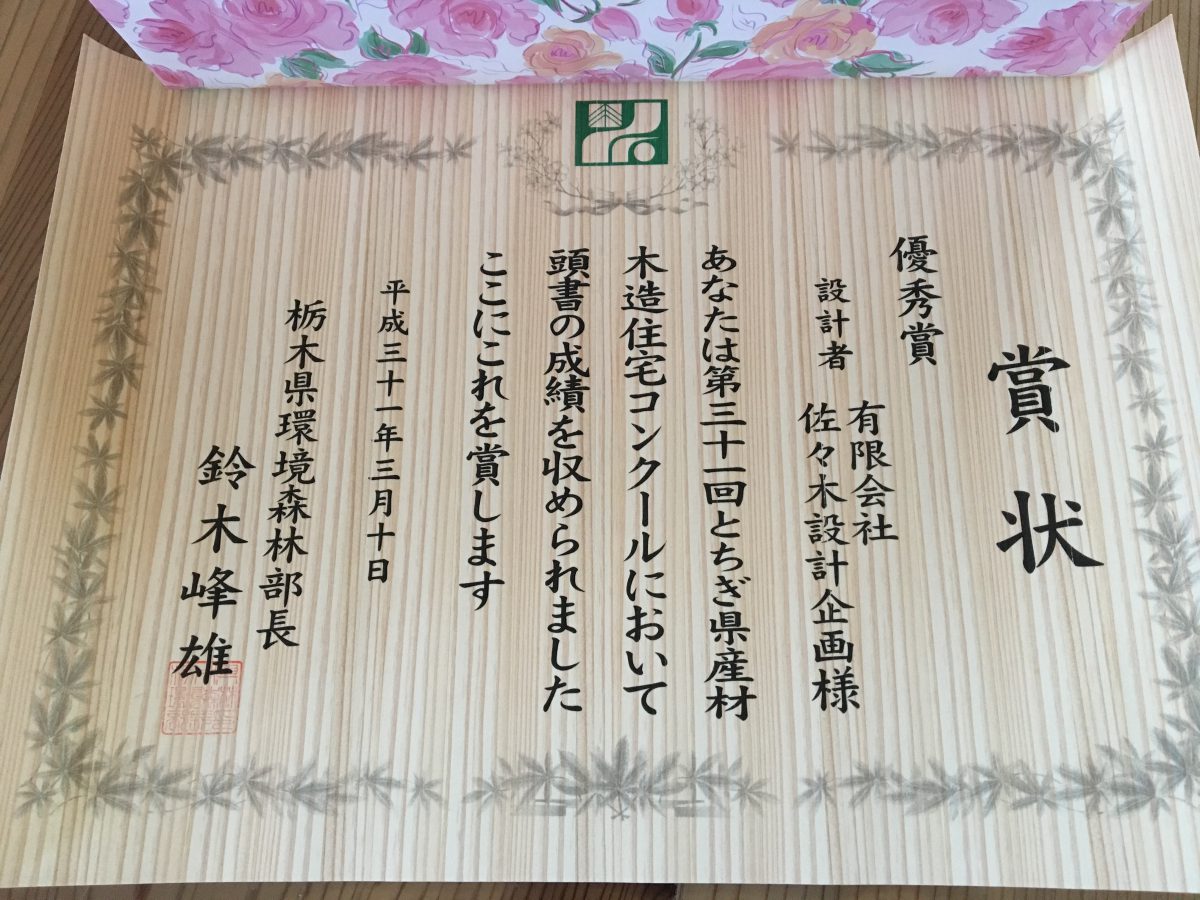 賞状
優秀賞
設計者
有限会社
佐々木設計企画様
あなたは第三十一回とちぎ県産材
木造住宅コンクールにおいて
頭書の成績を収められました
ここにこれを賞します
平成三十一年三月十日
栃木県環境森林部長
鈴木峰雄